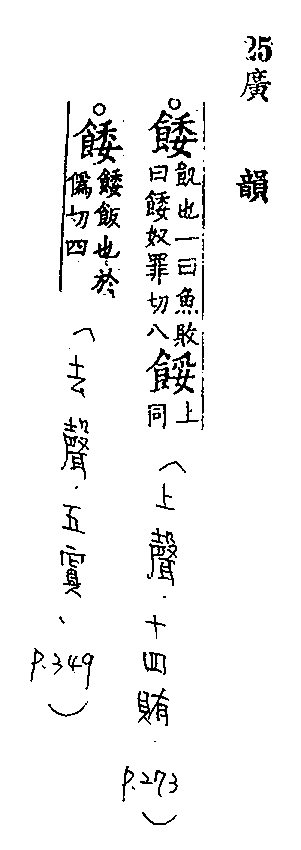 25 廣韻
○餧飢也一曰魚敗曰餧奴罪切八餒上同(上聲．十四賄．P.273)
○餧餧飯也於僞切四(去聲．五寘、P.349)